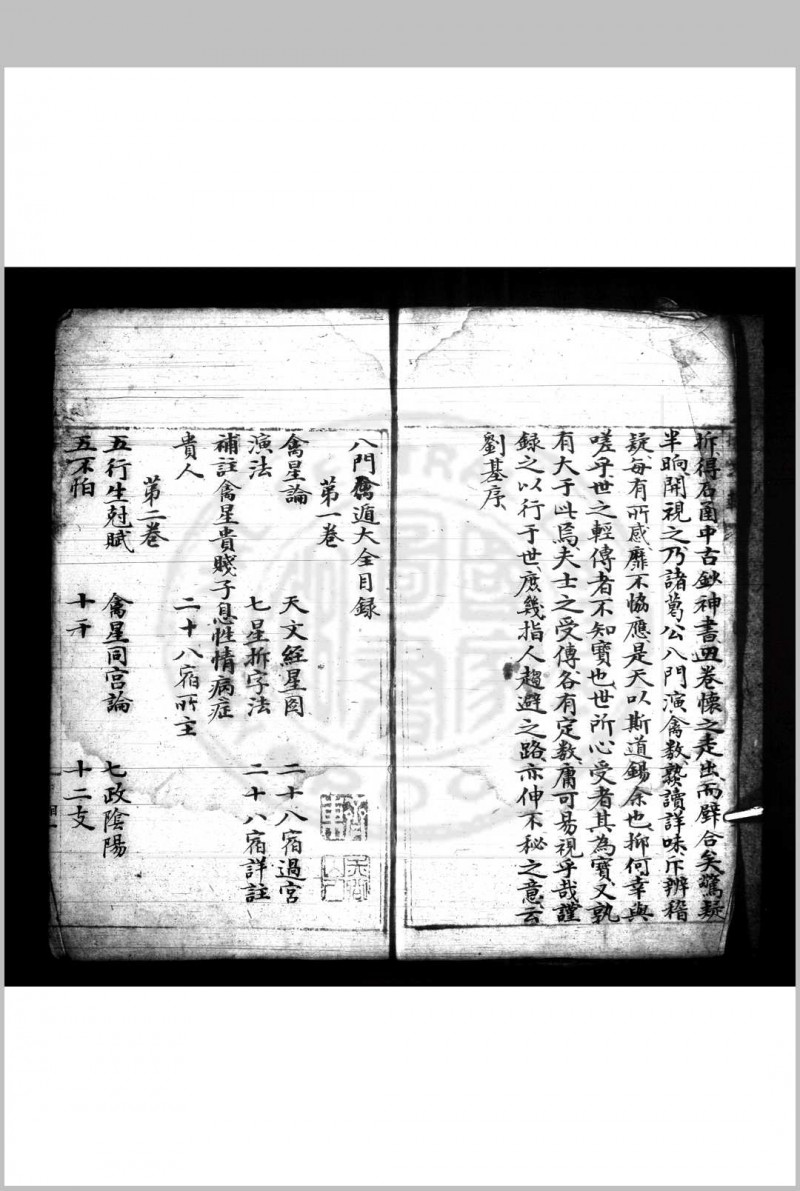 折得石函中古鈔神書四卷懷之走出而壁合矣驚疑
半晌開視之乃諸葛公八門演禽数熟讀詳味斤辨稽
疑每有所感靡不協應是天以斯道錫余也抑何幸與
嗟乎世之輕傳者不知寶也世所心受者其為寶又孰
有大于此焉夫士之受傳各有定数庸可易視乎哉謹
録之以行于世庶幾指人趨避之路亦伸不秘之意云
劉基序
八門禽遁大全目録
第一卷
禽星論 天文經星圖 二十八宿過宮
演法 七星折字法 二十八宿詳註
補註禽星貴賤子息性情病症
貴人 二十八宿所主
第二卷
五行生尅賦 禽星同宮論 七政陰陽
五不怕 十干 十二支